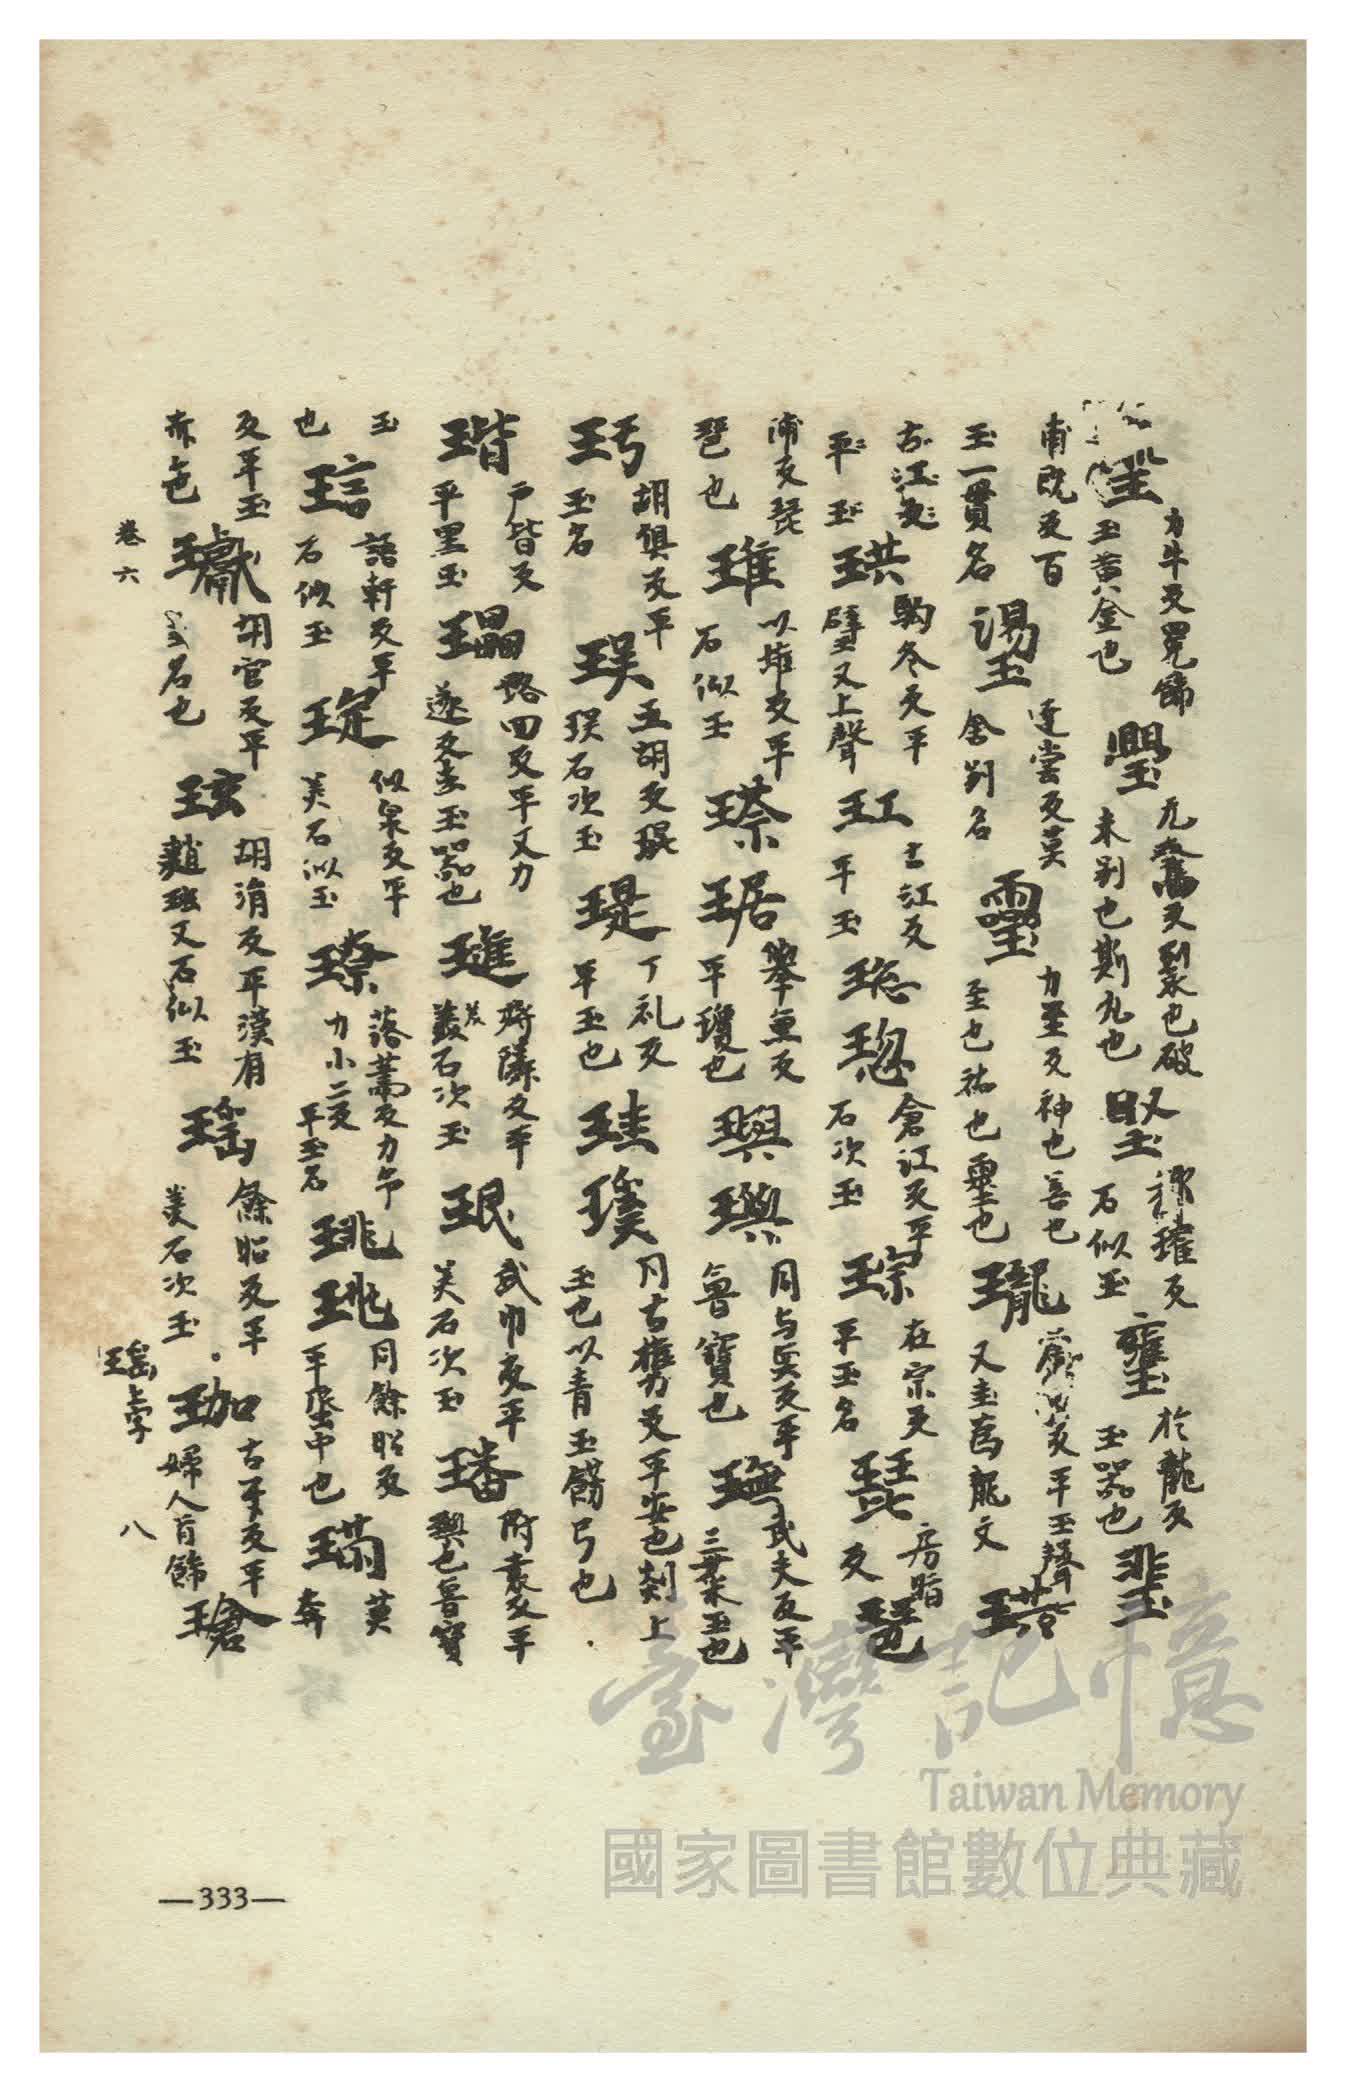 力牛反冕飾
玉黃金也
璺
亢奮反裂也破
未别也斯丸也
石似玉
壅
於龍反
玉器也
琲
甫既反百
玉一貫名
逹嘗反莫
舍别名
靈
力至反神也善也
至也祐也
瓏
反平玉聲
又圭為龍文
古江反
平玉
珙
駒冬反平
璧又上聲
玒
古江反
平玉
璁
倉江反平
石次玉
琮
在宗反
平玉名
琵
房脂
反
琶
浦反琵
琶也
琟
以堆反平
石似玉
琚
舉魚反
平瓊也
璵
同与㠯反平
魯寶也
璑
武夫反平
三葉玉也
玗
胡俱反平
玉名
琪
五胡反琨
琪石次玉
瑅
丁礼反
平玉也
珪
瓗
同古攜反平安也剡上
玉也以青玉餝弓也
瑎
户皆反
平黒玉
瓃
路囬反平又力
遂反去玉器也
璡
將隣反平
石次玉
珉
武巾反平
美石次玉
璠
附袁反平
璵也魯寶
玉
也
琂
語軒反平
石似玉
琁
似泉反平
美石似玉
璙
落蕭反力弔
力小二反
平玉名
珧
同餘昭反
平蜃中也
璊
莫
奔
反平玉
赤色
瓛
胡官反平
名也
玹
胡涓反平漢有
趙玹又石似玉
瑤
餘昭反平
美石次玉
珈
古牙反平
婦人首飾
瑲
卷六
瑤上字
八
—333—
臺灣記憶
Taiwan Memory
國家圖書館數位典藏